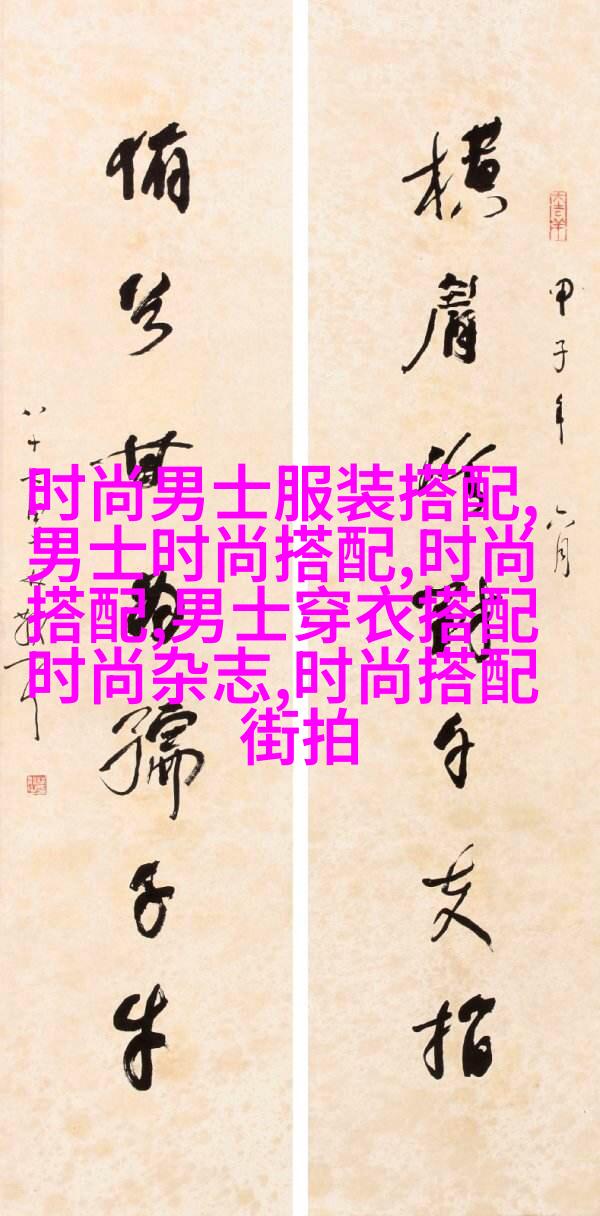 时尚男士服装搭配,
男士时尚搭配,时尚
搭配,男士穿衣搭配
时尚杂志,时尚搭配
街拍
甲子年六月
横眉冷對千夫指
俯首甘為孺子牛
八十